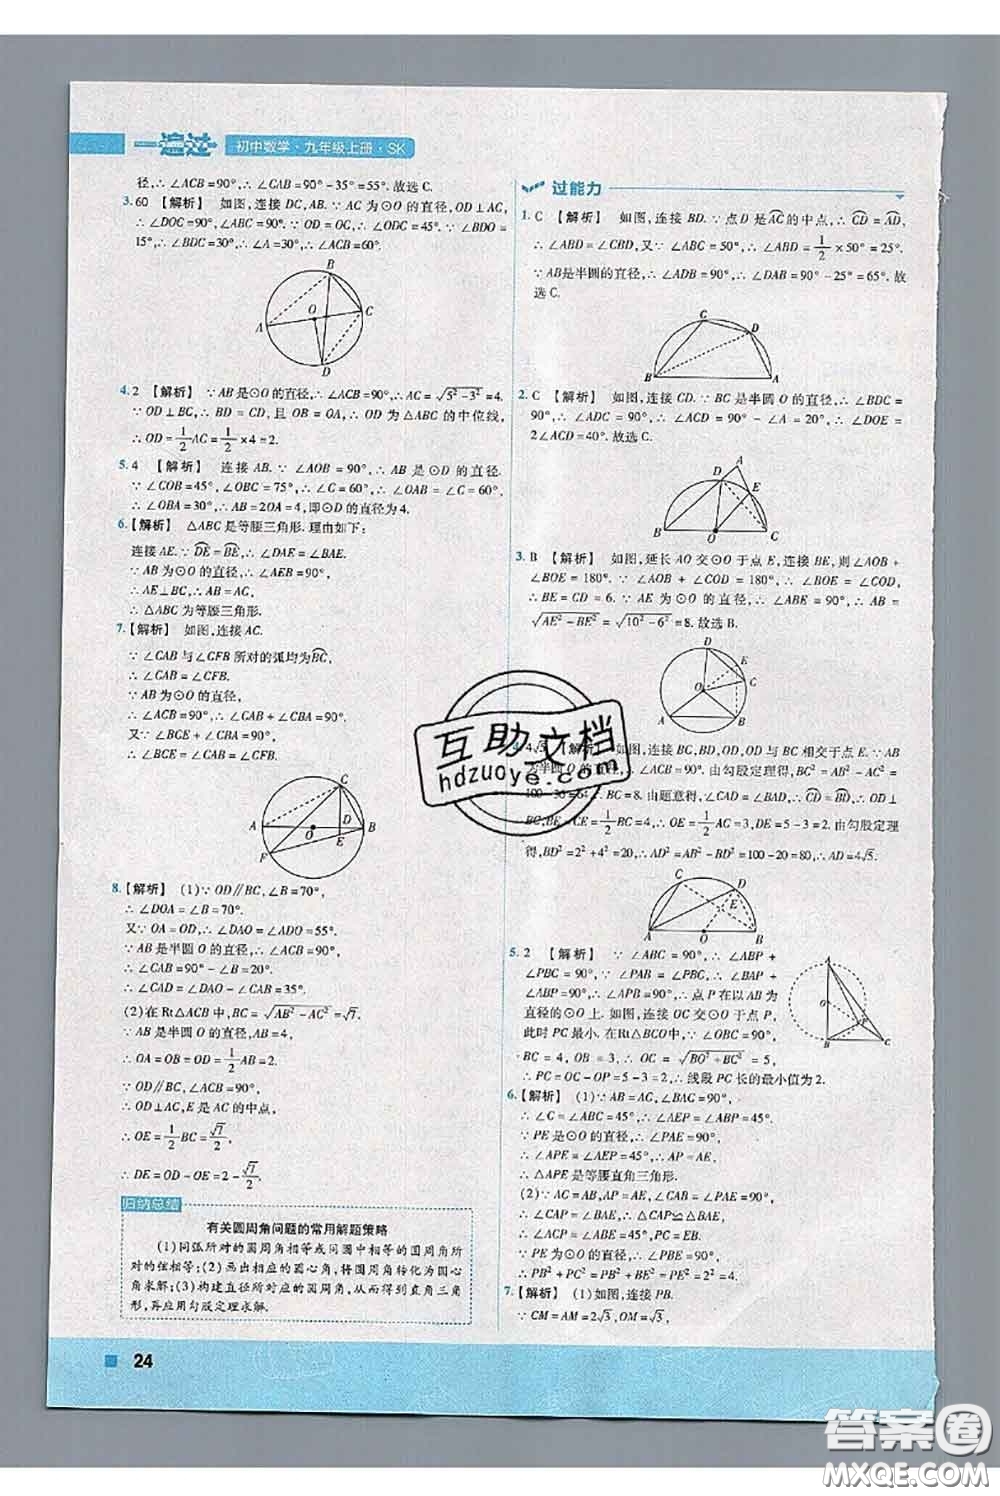 一遍过 初中数学·九年级上册·SK
径,∴∠ACB=90°,∴∠CAB=90°-35°=55°.故选C.
3.60 【解析】 如图,连接DC,AB.∵AC为⊙O的直径,OD⊥AC,
∴∠DOC=90°,∠ABC=90°.∵OD=OC,∴∠ODC=45°.∵∠BDO=
15°,∴∠BDC=30°,∴∠A=30°,∴∠ACB=60°.
B
O
C
A
D
4.2 【解析】 ∵AB是⊙O的直径,∴∠ACB=90°,∴AC=√(5²-3²)=4.
∵OD⊥BC,∴BD=CD,且OB=OA,∴OD为△ABC的中位线,
∴OD=1/2AC=1/2×4=2.
5.4 【解析】 连接AB.∵∠AOB=90°,∴AB是⊙O的直径.
∵∠COB=45°,∠OBC=75°,∴∠C=60°,∴∠A=∠C=60°,
∴∠OBA=30°,∴AB=2OA=4,即⊙O的直径为4.
6.【解析】 △ABC是等腰三角形.理由如下:
连接AE.∵DE=BE,∴∠DAE=∠BAE.
∵AB为⊙O的直径,∴∠AEB=90°,
∴AE⊥BC,∴AB=AC,
∴△ABC为等腰三角形.
7.【解析】 如图,连接AC.
∵∠CAB与∠CFB所对的弧均为BC,
∴∠CAB=∠CFB.
∵AB为⊙O的直径,
∴∠ACB=90°,∴∠CAB+∠CBA=90°.
又∵∠BCE+∠CBA=90°,
∴∠BCE=∠CAB=∠CFB.
C
A
O
D
B
E
F
8.【解析】 (1)∵OD∥BC,∠B=70°,
∴∠DOA=∠B=70°.
又∵OA=OD,∴∠DAO=∠ADO=55°.
∵AB是半圆O的直径,∴∠ACB=90°,
∴∠CAB=90°-∠B=20°.
∴∠CAD=∠DAO-∠CAB=35°.
(2)在Rt△ACB中,BC=√(AB²-AC²)=√7.
∵AB是半圆O的直径,AB=4,
∴OA=OB=OD=1/2AB=2.
∵OD∥BC,∠ACB=90°,
∴OD⊥AC,E是AC的中点,
∴OE=1/2BC=√7/2,
∴DE=OD-OE=2-√7/2.
归纳总结
有关圆周角问题的常用解题策略
(1)同弧所对的圆周角相等或同圆中相等的圆周角所
对的弦相等;(2)画出相应的圆心角,将圆周角转化为圆心
角求解;(3)构建直径所对应的圆周角,从而得到直角三角
形,再应用勾股定理求解.
24
过能力
1.C 【解析】 如图,连接BD.∵点D是AC的中点,∴CD=AD,
∴∠ABD=∠CBD,又∵∠ABC=50°,∴∠ABD=1/2×50°=25°.
∵AB是半圆的直径,∴∠ADB=90°,∴∠DAB=90°-25°=65°.故
选C.
C
D
B
A
2.C 【解析】 如图,连接CD.∵BC是半圆O的直径,∴∠BDC=
90°,∴∠ADC=90°,∴∠ACD=90°-∠A=20°,∴∠DOE=
2∠ACD=40°.故选C.
A
D
E
B
O
C
3.B 【解析】 如图,延长AO交⊙O于点E,连接BE,则∠AOB+
∠BOE=180°.∵∠AOB+∠COD=180°,∴∠BOE=∠COD,
∴BE=CD=6.∵AE为⊙O的直径,∴∠ABE=90°,∴AB=
√(AE²-BE²)=√(10²-6²)=8.故选B.
D
E
C
O
A
B
4.4√5 【解析】 如图,连接BC,BD,OD,OD与BC相交于点E.∵AB
为半圆O的直径,∴∠ACB=90°.由勾股定理得,BC²=AB²-AC²=
100-36=64,∴BC=8.由题意得,∠CAD=∠BAD,∴CD=BD,∴OD⊥
BC,BE=CE=1/2BC=4,∴OE=1/2AC=3,DE=5-3=2.由勾股定理
得,BD²=2²+4²=20,∴AD²=AB²-BD²=100-20=80,∴AD=4√5.
C
D
E
A
O
B
5.2 【解析】 ∵∠ABC=90°,∴∠ABP+
∠PBC=90°,∵∠PAB=∠PBC,∴∠BAP+
∠ABP=90°,∴∠APB=90°,∴点P在以AB为
直径的⊙O上,如图,连接OC交⊙O于点P,
此时PC最小.在Rt△BCO中,∵∠OBC=90°,
BC=4,OB=3,∴OC=√(BO²+BC²)=5,
∴PC=OC-OP=5-3=2,∴线段PC长的最小值为2.
A
O
P
B
C
6.【解析】 (1)∵AB=AC,∠BAC=90°,
∴∠C=∠ABC=45°,∴∠AEP=∠ABP=45°.
∵PE是⊙O的直径,∴∠PAE=90°,
∴∠APE=∠AEP=45°,∴AP=AE,
∴△APE是等腰直角三角形.
(2)∵∠CAB=∠PAE=90°,
∴∠CAP=∠BAE,∴△CAP≌△BAE,
∴∠ACP=∠ABE=45°,PC=EB.
∵PE为⊙O的直径,∴∠PBE=90°,
∴PB²+PC²=PB²+BE²=PE²=4.
7.【解析】 (1)如图,连接PB.
∵CM=AM=2√3,OM=√3,
互助文档
hdzuoye.com
答案圈
MXQE.COM